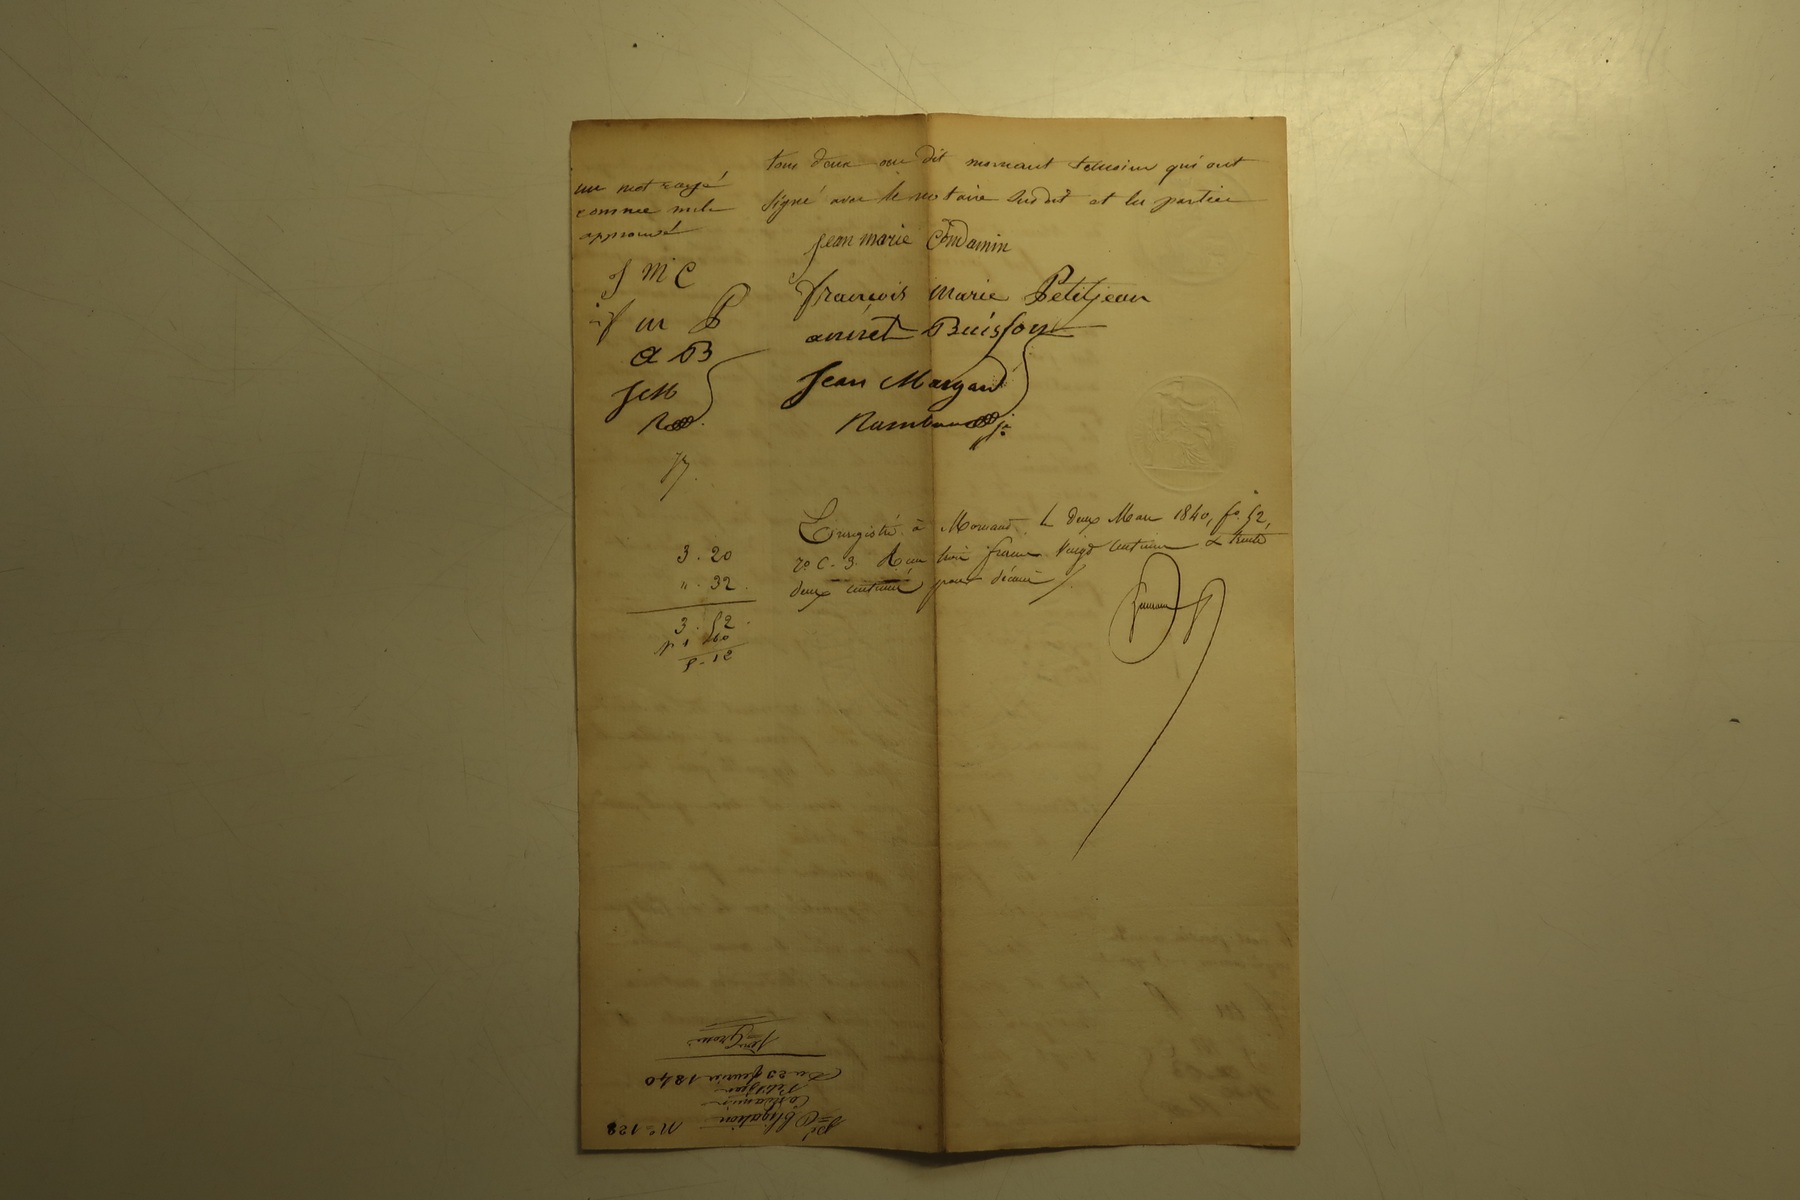 tous deux au dit mornant temoins qui ont
signé avec le notaire susdit et les parties
un mot rayé
comme nul
approuvé
jean marie Condamin
J M C
françois marie Petitjean
f m P
Buisson
a B
Jean Margand
J M
Rambaud jn
Enregistré à Mornant le deux Mars 1840, fo 52,
ro C. 3. Reçu trois francs vingt centimes & trente
deux centimes pour décime
3 . 20
" . 32
3 . 52
1 60
5 . 12
No 128
Obligation
Condamin
Petitjean
Du 23 fevrier 1840
1ere Grosse